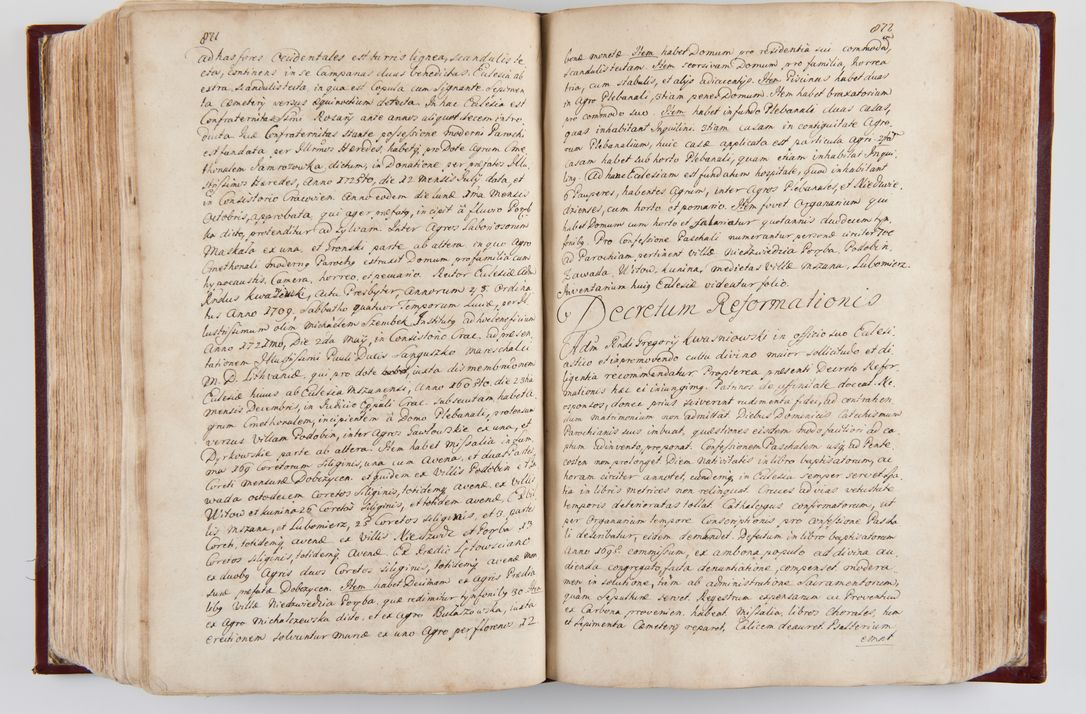 871
ad has fores Occidentales est turris lignea, scandulis te
cta, continens in se Campanas duas benedictas. Ecclesia ab
extra scandulis tecta, in qua est Copula cum Signante. Sepimen
ta Cæmeterij versus æquinoctium defecta. In hac Ecclesia est
Confraternitas Ssmi Rosarij ante annos aliquot decem intro
ducta. Quæ Confraternitas stante possessione moderni Parochi
est fundata per Illrmos Heredes, habetq; pro Dote Agrum Cme
thonalem Jamrozowka, dictum, in Donatione per præfatos Illu
strissimos Heredes, Anno 1725to, die 12 Mensis Julij data, et
in Consistorio Cracovien. Anno eodem die lunæ 1ma Mensis
Octobris, approbata, qui ager præfatq; incipit â fluvio Porę̃b
ka dicto, protenditur ad Sylvam. Inter Agros Laboriosorum
Maskala ex una, et Gronski parte ab altera, in quo Agro
Cmethonali modernq; Parochq; extruxit Domum pro familia cum
hypocaustis, Camera, horreo, et pecuario. Rector Ecclesiæ Adm
Rndus Kwaśniewski, actu Presbyter, Annorum 48. Ordina
tus Anno 1709. Sabbatho quatuor Temporum Lucæ, per Il
lustrissimum olim Michaelem Szembek. Institutq; ad hoc beneficium
Anno 1721mo, Die 2da Maij, in Consistorio Crac. ad præsen
tationem Illustrissimi Pauli Ducis Sanguszko Mareschalci
M. D. Lithvaniæ, qui pro dote habet, iuxta dismembrationem
Ecclesiæ huius ab Ecclesia Mszanensi, Anno 1604to. die 23tia
Mensis Decembris, in Judicio Epali Crac. subsecutam habet a
grum Cmethonalem, incipientem â Domo Plebanali, protensum
versus Villam Podobin, inter Agros Pawlowskie ex una, et
Dyrkowskie parte ab altera. Item habet Missalia in sum
ma 109 Coretorum siliginis, una cum Avena, et duas partes
Coreti mensuræ Dobczycen. et quidem ex Villis Podobin et Za
wada octodecem Coretos siliginis, totidemq; avenæ. ex Villis
Witow et Kunina 26 Coretos siliginis, et totidem avenæ. Ex Vil
lis Mszana, et Lubomierz, 25 Coretos siliginis, et 3. partes
Coreti, totidemq; avenæ. ex Villis Niedzwiedz et Poręba 13
Coretos siliginis, totidemq; Avenæ. Ex Prædii Lętowsciane
ex duobq; Agris duos Coretos siliginis, totidemq; avenæ men
suræ præfatæ Dobczycen. Item habet Decimam ex agris Prædia
libq; Villæ Niedzwiedzia Poręba, quæ redimitur tynfonibq; 30. Item
ex Agro Michalczewska dicto, et ex Agro Bulaszowska, iuxta
Erectionem solvuntur Marcæ ex uno Agro per florenos 12
872
bonæ monetæ. Item habet Domum pro residentia sui commodam,
scandulis tectam. Item seorsivam Domum, pro familia, horrea
tria, cum stabulis, et alijs adiacentijs. Item Piscinas habet duas
in agro Plebanali, 3tiam penes Domum. Item habet braxatorium
pro commodo suo. Item habet in fundo Plebanali duas casas,
quas inhabitant Inquilini. 3tiam casam in contiguitate Agro
rum Plebanalium, huic casæ applicata est particula Agri. 4tam
Casam habet sub horto Plebanali, quam etiam inhabitat Inqui
linq;. Ad hanc Ecclesiam est fundatum hospitale, quod inhabitant
6 Pauperes, habentes Agrum, inter Agros Plebanales, et Niedzwie
dzienses, cum horto et pomario. Item fovet Organarium qui
habet Domum cum horto et salariatur quotannis duodecem tyn
fonibq;. Pro Confessione Paschali numerantur personæ circiter 700
ad Parochiam pertinent Villæ Niedzwiedzia Poręba, Podobin,
Zawada, Witow, Kunina, Medietas Villæ Mszana, Lubomierz.
Inventarium huiq; Ecclesiæ videatur folio.
Decretum Reformationis
Adm Rndi Gregorij Kwasniowski in officio suo Ecclesi
astico et in promovendo cultu divino maior sollicitudo et di
ligentia recommendatur. Propterea præsenti Decreto Refor
mationis hæc ei iniungimq;. Patrinos de affinitate doceat. Ne
sponsos, donec prius sciverint rudimenta fidei, ad contrahen
dum matrimonium non admittat. Diebus Dominicis Catechismum
Parochianis suis imbuat, quæstiones eisdem modo faciliori ad ca
ptum adinvento, proponat. Confessionem Paschalem usq; ad Pente
costen non prolonget. Diem Nativitatis in libro baptisatorum, ac
horam circiter annotet, eundemq; in Ecclesia semper seret et sta
tia in libris metrices non relinquat. Cruces ad vias vetustate
temporis deterioratas tollat. Cathalogus confirmatorum, ut
per Organarium tempore Conscriptionis pro confessione Pascha
li describatur, eidem demandet. Defectum in libro baptisatorum
Anno 1696 commissum, ex ambona populo ad divina au
dienda congregato, facta denuntiatione, compenset. modera
men in solutione, tàm ab administratione Sacramentorum,
quàm sepulturæ servet. Regestrum expensarum ac Proventuum
ex Carbona provenien. habeat. Missalia, libros Chorales, tum
et Sepimenta Cæmeterij reparet. Calicem deauret. Psalterium
emat